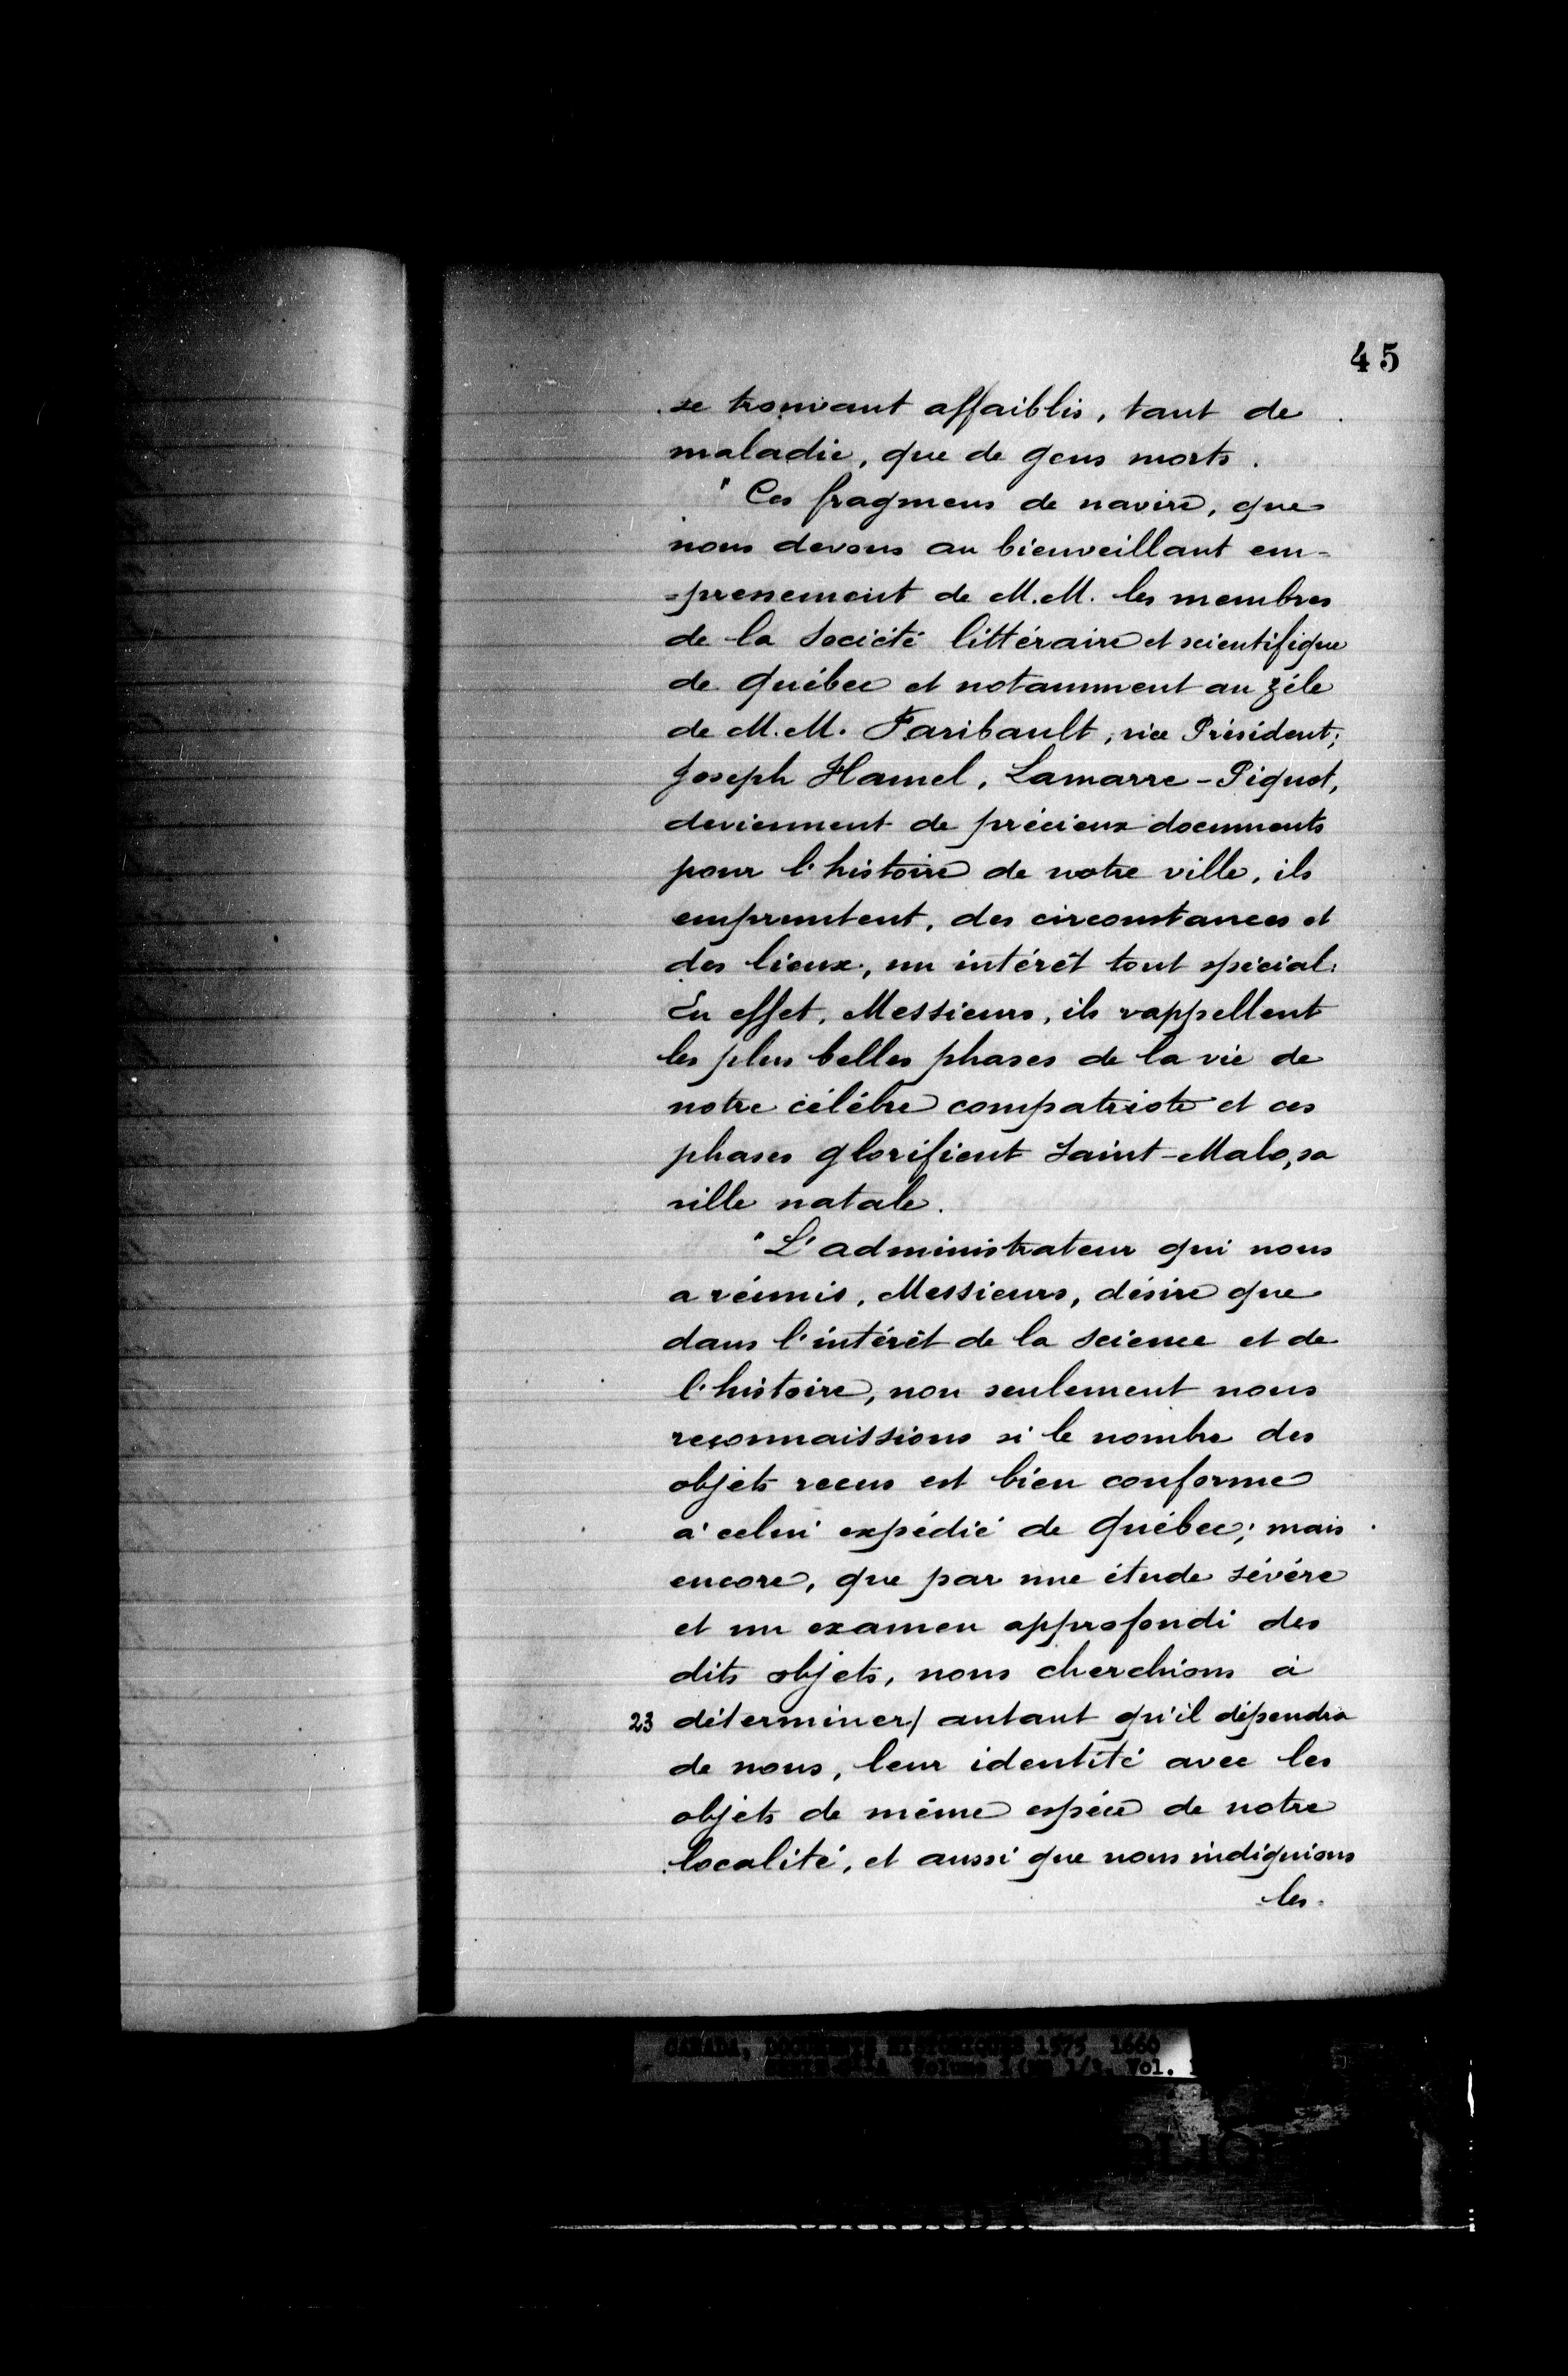 45
se trouvant affaiblis, tant de
maladie, que de gens morts.
"Ces fragmens de navire, que
nous devons au bienveillant em=
=pressement de M.M. les membres
de la Société littéraire et scientifique
de Québec et notamment au zéle
de M.M. Faribault, vice Président;
Joseph Hamel, Lamarre-Piquot,
deviennent de précieux documents
pour l'histoire de notre ville, ils
empruntent, des circonstances et
des lieux, un intérêt tout spécial.
En effet, Messieurs, ils rappellent
les plus belles phases de la vie de
notre célébre compatriote et ces
phases glorifient Saint-Malo, sa
ville natale.
"L'administrateur qui nous
a réunis, Messieurs, désire que
dans l'intérêt de la science et de
l'histoire, non seulement nous
reconnaissions si le nombre des
objets recus est bien conforme
à celui expédié de Québec; mais
encore, que par une étude sévére
et un examen approfondi des
dits objets, nous cherchions à
23 déterminer/ autant qu'il dépendra
de nous, leur identité avec les
objets de même espéce de notre
localité, et aussi que nous indiquions
les
CANADA, DOCUMENTS HISTORIQUES 1575 1660
Vol.